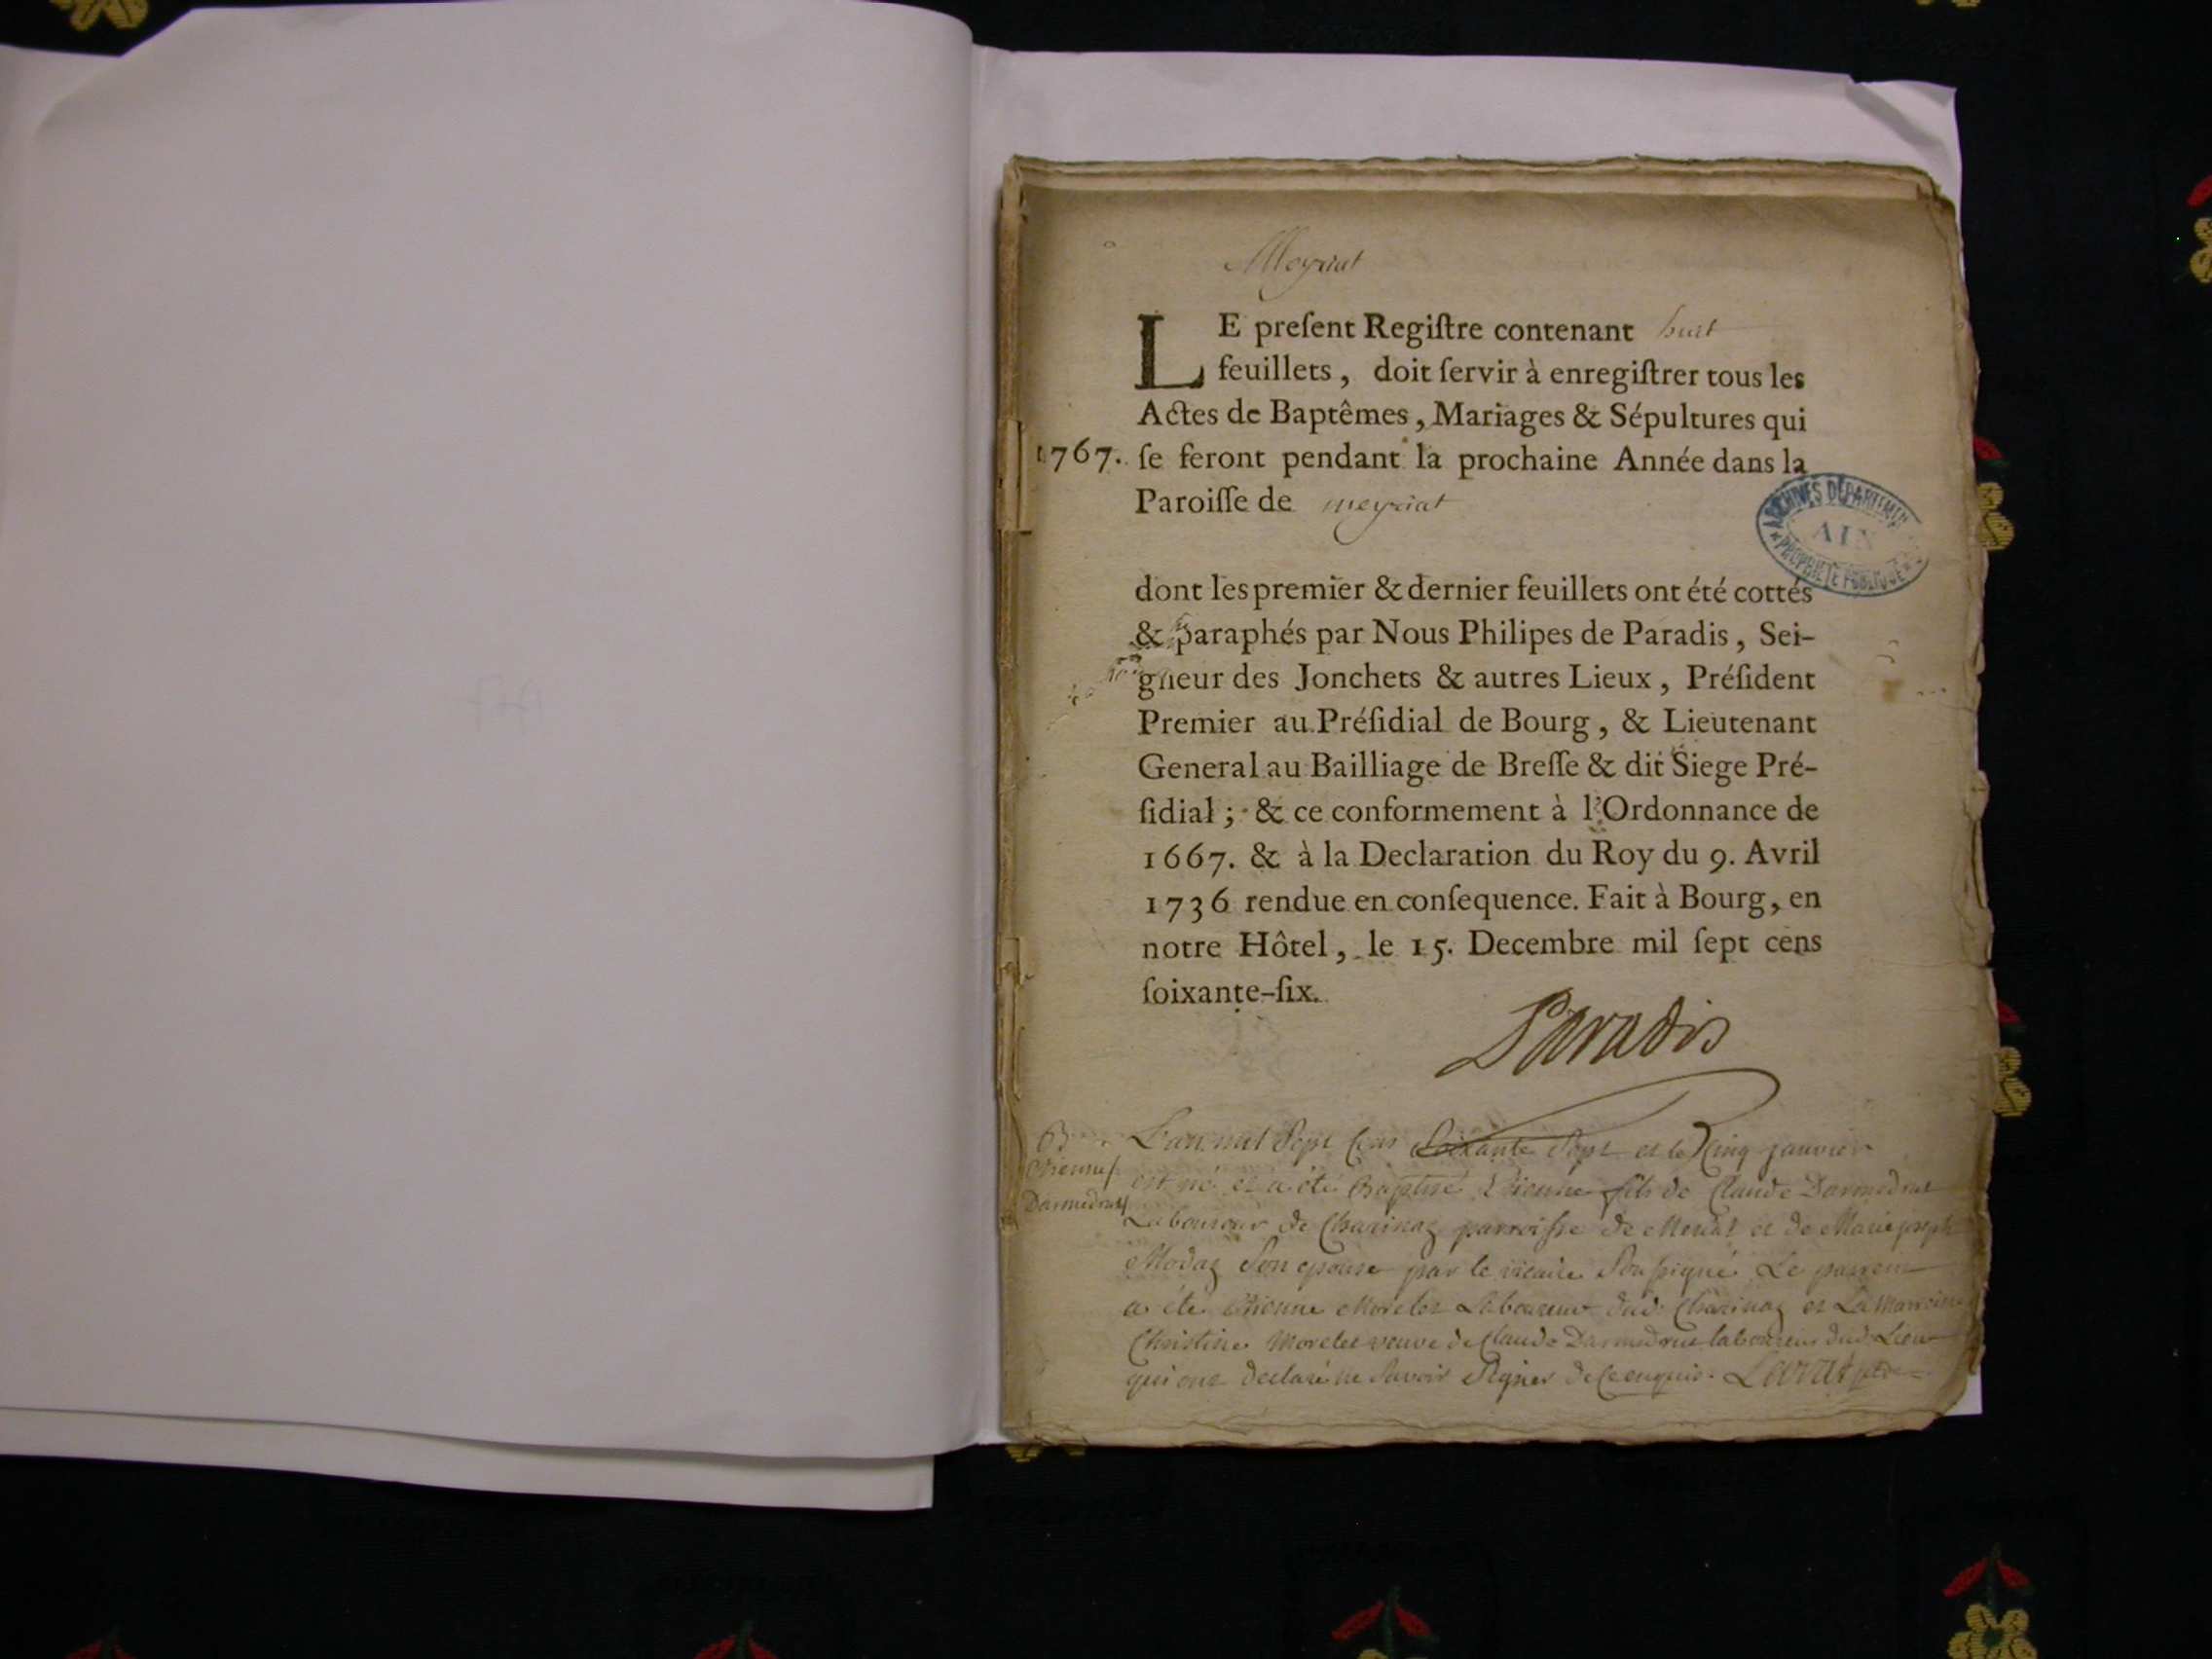 Meyriat
LE preſent Regiſtre contenant huit
feuillets, doit ſervir à enregiſtrer tous les
Actes de Baptêmes, Mariages & Sépultures qui
1767. ſe feront pendant la prochaine Année dans la
Paroiſſe de meyriat
ARCHIVES DÉPARTEMEN
AIN
PROPRIÉTÉ PUBLIQUE
dont les premier & dernier feuillets ont été cottés
& paraphés par Nous Philipes de Paradis, Sei-
gneur des Jonchets & autres Lieux, Préſident
Premier au Préſidial de Bourg, & Lieutenant
General au Bailliage de Breſſe & dit Siege Pré-
ſidial; & ce conformement à l'Ordonnance de
1667. & à la Declaration du Roy du 9. Avril
1736 rendue en conſequence. Fait à Bourg, en
notre Hôtel, le 15. Decembre mil ſept cens
ſoixante-ſix.
Paradis
B
Etienne
Darmedrut
L'an mil Sept Cens Soixante Sept et le Cinq janvier
est né et a été Baptisé Etienne fils de Claude Darmedrut
Laboureur de Charinaz parroisse de Meriat et de Marie joseph
Modaz Son epouse par le vicaire Soussigné Le parrein
a été Etienne Morelet Laboureur dud. Charinaz et La Marreine
Christine Morelet veuve de Claude Darmedrut laboureur dud. Lieu
qui ont declaré ne Savoir Signer de Ce enquis.